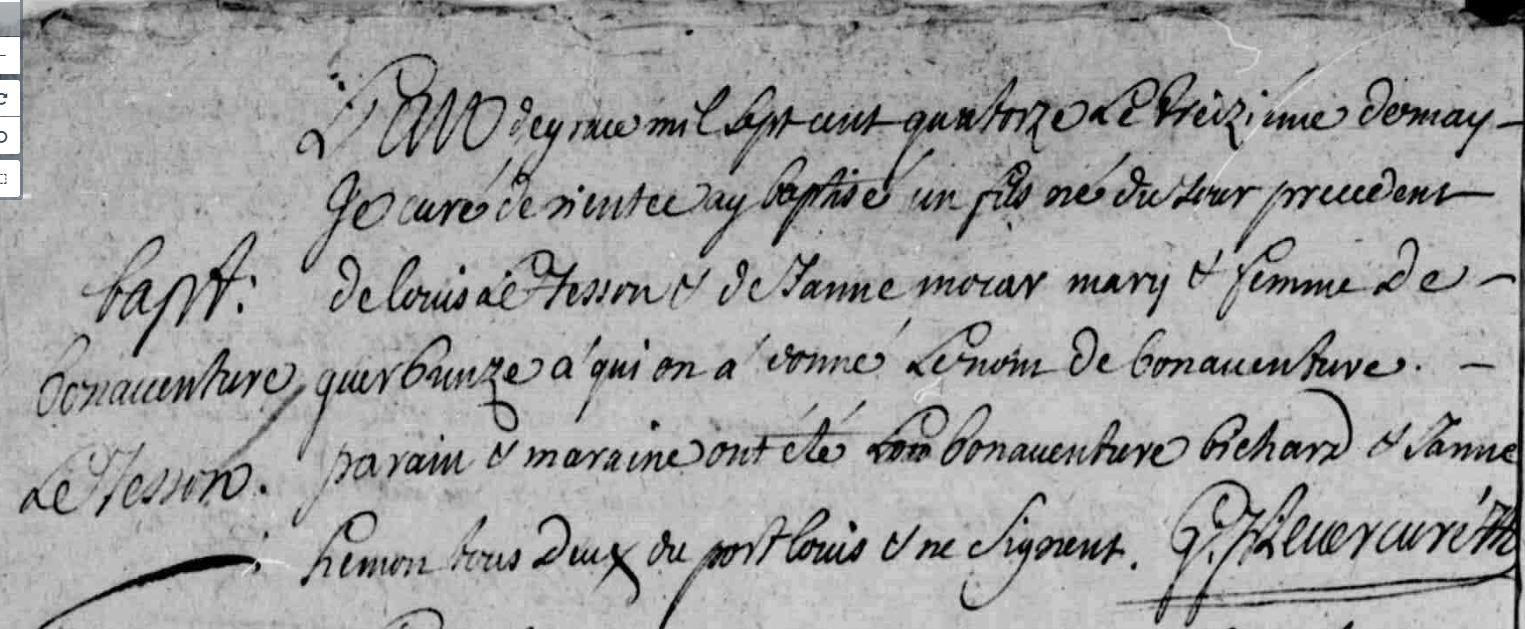 L'an de grace mil sept cent quatorze le treizieme de may -
Je curé de rientec ay baptisé un fils né du Jour precedent
bapt: de louis Le Tesson & de Janne morar mary & femme de -
bonauenture querbunze a qui on a donné Le nom de bonauenture. -
Le Tesson. parain & maraine ont été bonauenture brehard & Janne
hemon tous deux du port louis & ne signent. curé